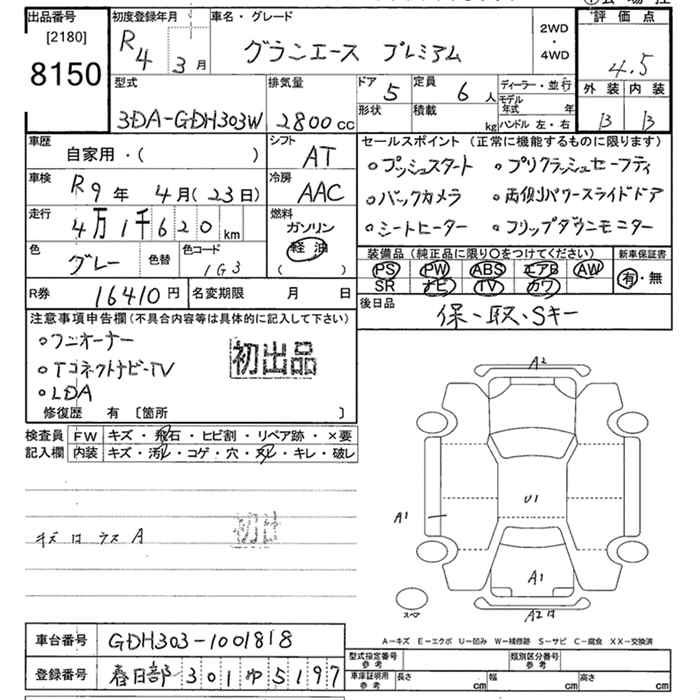 出品番号 初度登録年月 車名・グレード 評価点
[2180] R4 3月 グランエース プレミアム 2WD・4WD 4.5
8150 型式 排気量 ドア 5 定員 6人 ディーラー・並行 外装 内装
3DA-GDH303W 2800cc 形状 積載 kg モデル年式 年 ハンドル 左・右 B B
車歴 自家用・( ) シフト AT セールスポイント (正常に機能するものに限ります)
車検 R9年 4月(23日) 冷房 AAC
○プッシュスタート ○プリクラッシュセーフティ
○バックカメラ ○両側パワースライドドア
○シートヒーター ○フリップダウンモニター
走行 4万1千620km 燃料 ガソリン 軽油 ( )
色 グレー 色替 色コード 1G3
装備品 (純正品に限り○をつけてください) 新車保証書
PS PW ABS エアB AW 有・無
SR ナビ TV カワ
R券 16410円 名変期限 月 日 後日品
保、取、Sキー
注意事項申告欄 (不具合内容等は具体的に記入して下さい)
○ワンオーナー 初出品
○TコネクトナビTV
○LDA
修復歴 有 〔箇所 〕
検査員記入欄 FW キズ・飛石・ヒビ割・リペア跡・×要
内装 キズ・汚れ・コゲ・穴・スレ・キレ・破レ
A2
U1
A1
キズ ロ ウス A
A1
スペア
A2
A-キズ E-エクボ U-凹み W-補修跡 S-サビ C-腐食 XX-交換済
車台番号 GDH303-1001818
型式指定番号 参考 類別区分番号 参考
登録番号 春日部 301 ゆ 5197
車庫証明用 参考 長さ cm 幅 cm 高さ cm